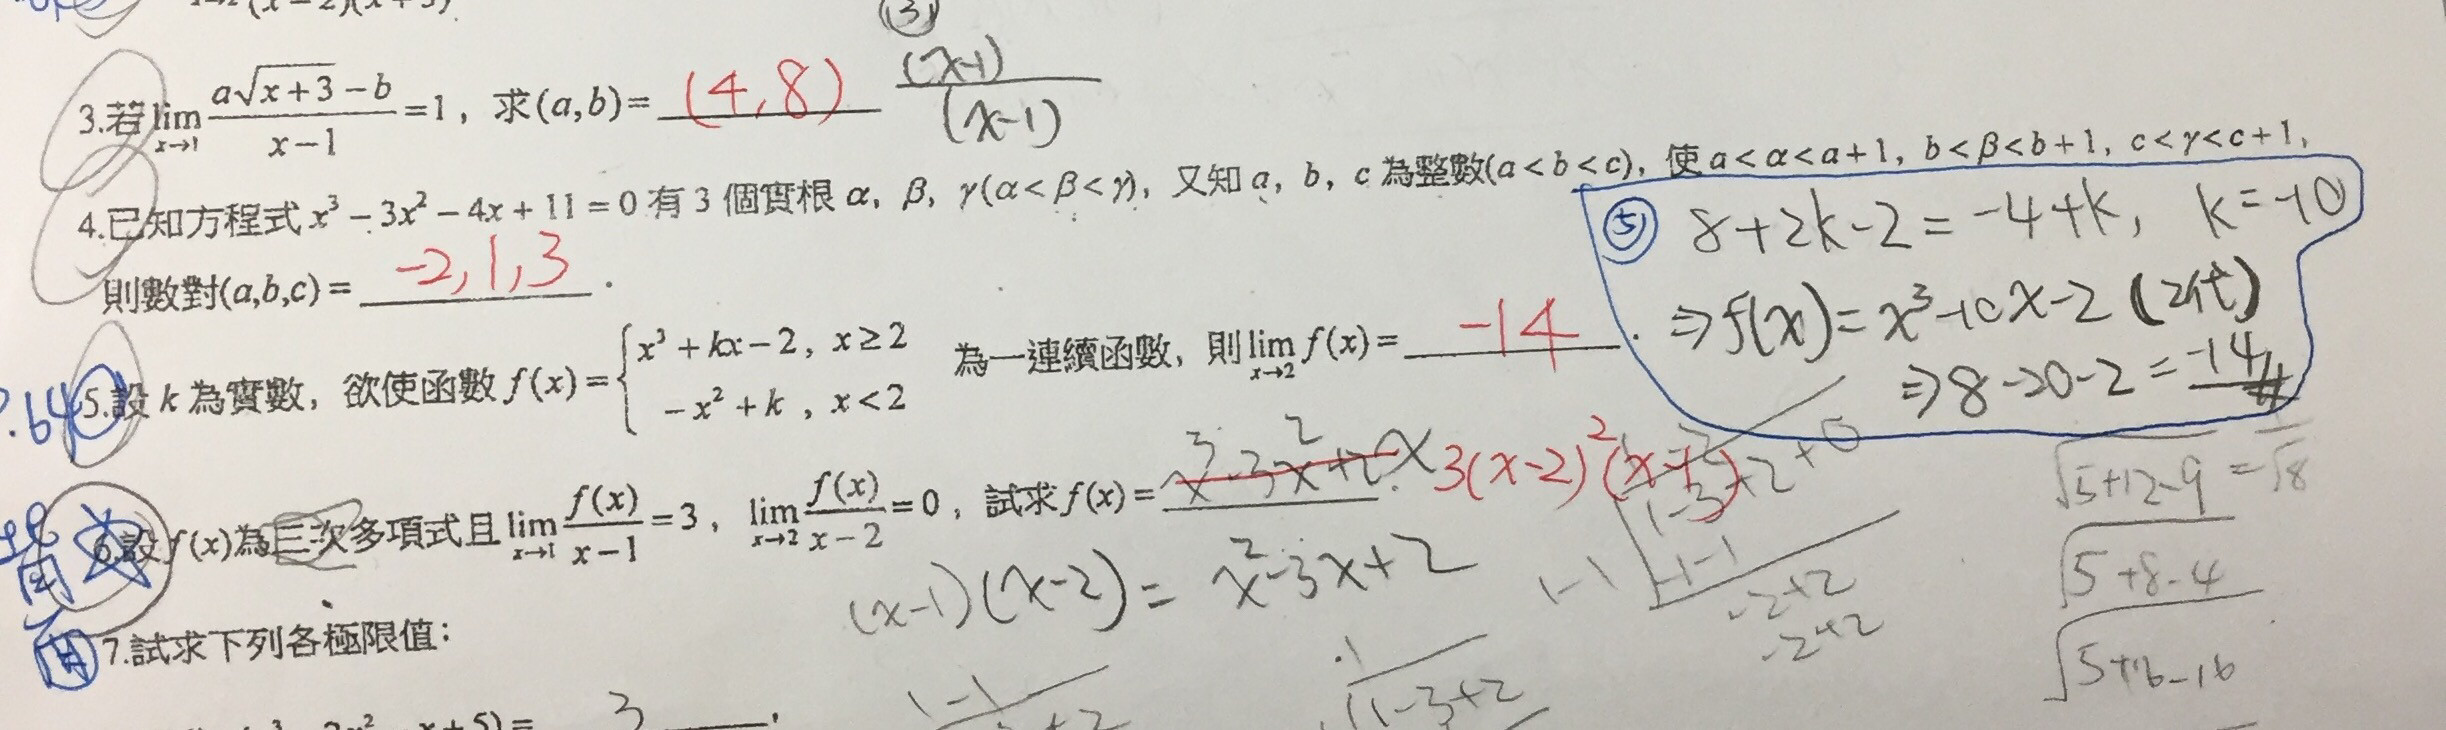 (3)
3.若 lim x→1 (a√(x+3) − b)/(x−1) = 1，求(a,b)= (4,8)
(x-1)/(x-1)
4.已知方程式 x³ − 3x² − 4x + 11 = 0 有 3 個實根 α, β, γ(α < β < γ)，又知 a, b, c 為整數(a < b < c)，使 a < α < a+1, b < β < b+1, c < γ < c+1,
則數對(a,b,c) = -2,1,3 .
⑤ 8+2k-2=-4+k, k=-10
⇒f(x)=x³-10x-2 (2代)
⇒8-20-2=-14
5.設 k 為實數，欲使函數 f(x) = { x³ + kx − 2, x ≥ 2
−x² + k , x < 2
為一連續函數，則 lim x→2 f(x) = -14 .
6.設 f(x)為三次多項式且 lim x→1 f(x)/(x−1) = 3， lim x→2 f(x)/(x−2) = 0，試求 f(x) = x³-3x²+2x 3(x-2)²(x-1)
(x-1)(x-2) = x²-3x+2
1-3+2+0
1-1
-2+2
-2+2
√5+12-9 = √8
√5+8-4
√5+16-16
7.試求下列各極限值：
x+5) = 3 .
1-1
1-3+2